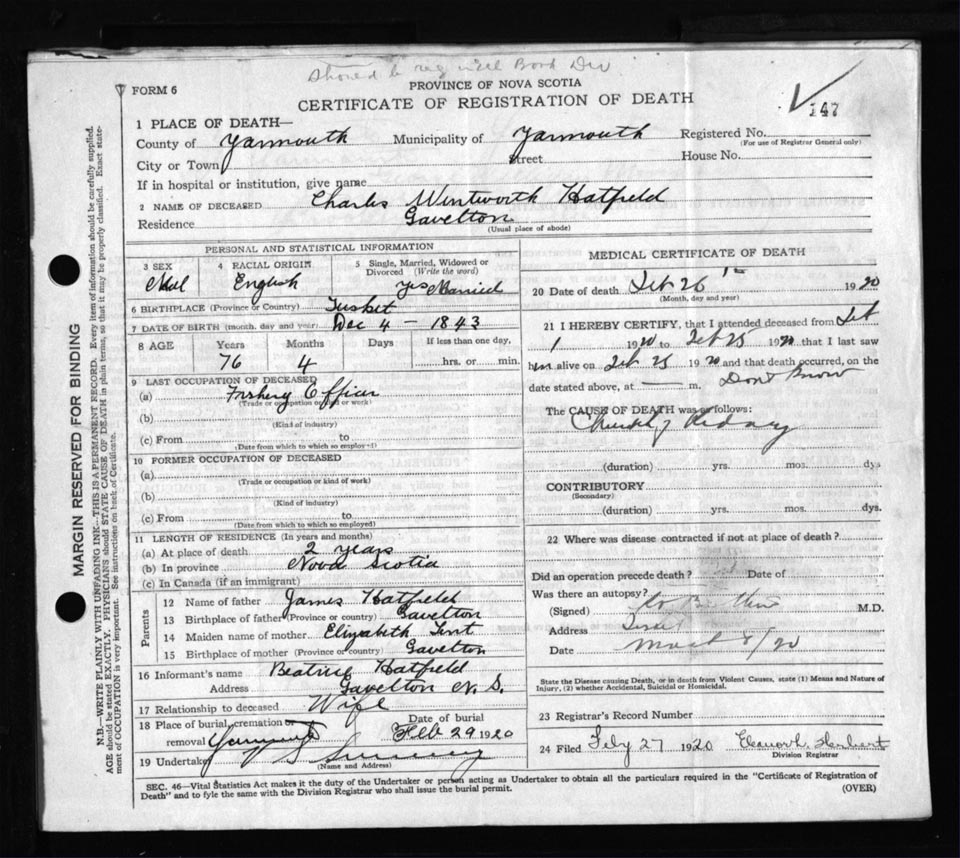 Should be reg
PROVINCE OF NOVA SCOTIA
FORM 6
CERTIFICATE OF REGISTRATION OF DEATH
147
1 PLACE OF DEATH—
County of Yarmouth Municipality of Yarmouth Registered No.
(For use of Registrar General only)
City or Town Street House No.
If in hospital or institution, give name
2 NAME OF DECEASED Charles Wentworth Hatfield
Residence Gavelton
(Usual place of abode)
PERSONAL AND STATISTICAL INFORMATION
3 SEX 4 RACIAL ORIGIN 5 Single, Married, Widowed or
Divorced (Write the word)
Male English Yes Married
6 BIRTHPLACE (Province or Country) Tusket
7 DATE OF BIRTH (month, day and year) Dec 4 - 1843
8 AGE Years Months Days If less than one day,
76 4 hrs. or min.
9 LAST OCCUPATION OF DECEASED
(a) Fishery Officer
(Trade or occupation or kind of work)
(b)
(Kind of industry)
(c) From to
(Date from which to which so employed)
10 FORMER OCCUPATION OF DECEASED
(a)
(Trade or occupation or kind of work)
(b)
(Kind of industry)
(c) From to
(Date from which to which so employed)
11 LENGTH OF RESIDENCE (In years and months)
(a) At place of death 2 years
(b) In province Nova Scotia
(c) In Canada (if an immigrant)
Parents
12 Name of father James Hatfield
13 Birthplace of father (Province or country) Gavelton
14 Maiden name of mother Elizabeth Tent
15 Birthplace of mother (Province or country) Gavelton
16 Informant's name Beatrice Hatfield
Address Gavelton N. S.
17 Relationship to deceased Wife
18 Place of burial, cremation or Date of burial
removal Yarmouth Feb 29 1920
19 Undertaker Sweeney
(Name and Address)
MEDICAL CERTIFICATE OF DEATH
20 Date of death Feb 26th 1920
(Month, day and year)
21 I HEREBY CERTIFY, that I attended deceased from Feb
1 1920 to Feb 25 1920 that I last saw
him alive on Feb 25 1920 and that death occurred, on the
date stated above, at — m. Dont know
The CAUSE OF DEATH was as follows:
Kidney
(duration) yrs. mos. dys
CONTRIBUTORY
(Secondary)
(duration) yrs. mos. dys.
22 Where was disease contracted if not at place of death?
Did an operation precede death? Date of
Was there an autopsy?
(Signed) M.D.
Address Tusket
Date March 8/20
State the Disease causing Death, or in death from Violent Causes, state (1) Means and Nature of
Injury, (2) whether Accidental, Suicidal or Homicidal.
23 Registrar's Record Number
24 Filed Feby 27 1920 Eleanor L. Herbert
Division Registrar
SEC. 46—Vital Statistics Act makes it the duty of the Undertaker or person acting as Undertaker to obtain all the particulars required in the "Certificate of Registration of
Death" and to fyle the same with the Division Registrar who shall issue the burial permit. (OVER)
MARGIN RESERVED FOR BINDING
N.B.—WRITE PLAINLY WITH UNFADING INK—THIS IS A PERMANENT RECORD. Every item of information should be carefully supplied.
AGE should be stated EXACTLY. PHYSICIANS should STATE CAUSE OF DEATH in plain terms, so that it may be properly classified. Exact state-
ment of OCCUPATION is very important. See instructions on back of Certificate.